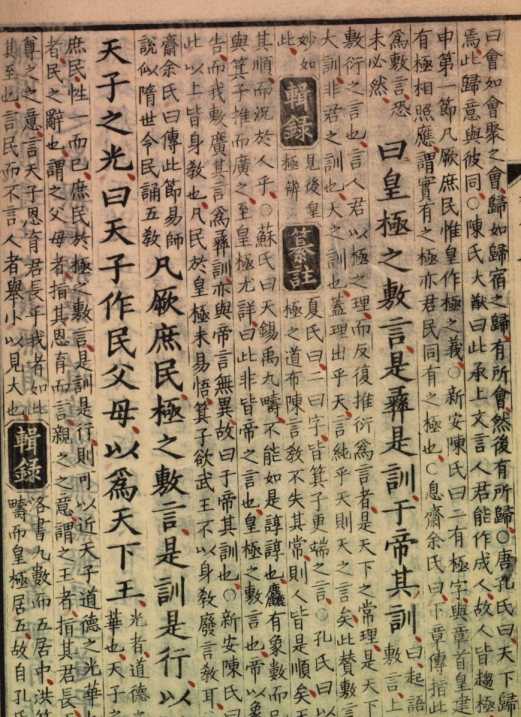 曰會如會聚之會歸如歸宿之歸有所會然後有所歸○唐孔氏曰天下歸
焉此歸意與彼同○陳氏大猷曰此承上文言人君能作成人故人皆趨極
申第一節凡厥庶民惟皇作極之義○新安陳氏曰二有極字與章首皇建
有極相照應謂實有之極亦君民同有之極也○息齋余氏曰下章傳指此
為敷言恐
未必然
曰皇極之敷言是彝是訓于帝其訓
曰起語
敷言上
敷衍之言也言人君以極之理而反復推衍為言者是天下之常理是天下
大訓非君之訓也天之訓也蓋理出乎天言純乎天則天之言矣此贊敷言
妙如
此
輯錄
見後皇
極辨
纂註
夏氏曰二曰字皆箕子更端之言○孔氏曰以
極之道布陳言教不失其常則人皆是順矣天
其順而況於人乎○蘇氏曰天錫禹九疇不能如是諄諄也麤有象數而已
與箕子推而廣之至皇極尤詳曰此非皆帝之言也皇極之敷言也帝以象
告而我敷廣其言為彝訓亦與帝言無異故曰于帝其訓也○新安陳氏曰
此以上皆身教也凡民於皇極未易悟箕子欲武王不以身教廢言教耳
齋余氏曰傳此節易師
說似隋世令民誦五教
凡厥庶民極之敷言是訓是行以
天子之光曰天子作民父母以為天下王
光者道德之
華也天子之
庶民性一而已庶民於極之敷言是訓是行則可以近天子道德之光華
者民之辭也謂之父母者指其恩育而言親之之意謂之王者指其君長
尊之之意言天子恩育君長乎我者如此
其至也言民而不言人者舉小以見大也
輯錄
洛書九數而五居中洪範
疇而皇極居五故自孔氏